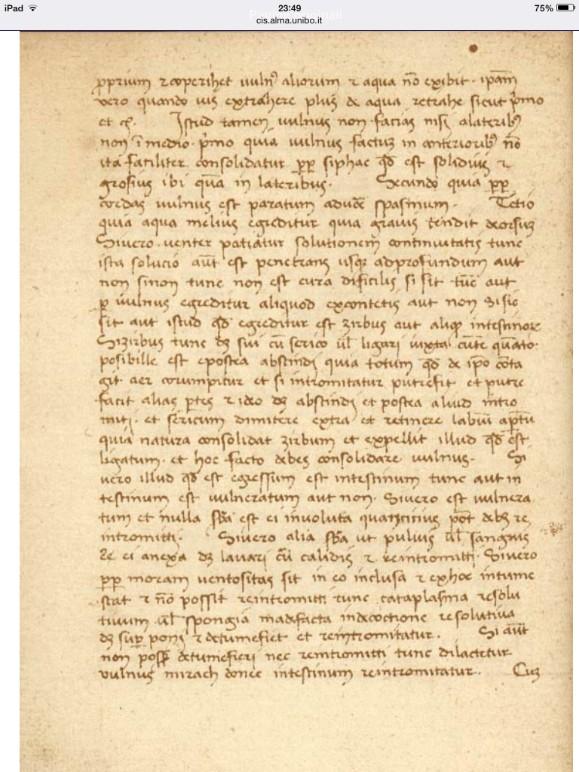 iPad 23:49 75%
cis.alma.unibo.it
pprium & coperihet uuln9 aliorum & aqua nõ exibit. ipam
vero quando uis extrahere plus de aqua retrahe sicut pmo
et c̃. Istud tamen uulnus non facias nisi a lateribꝫ
non ĩ medio. pmo quia uulnus factus in anterioribꝫ nõ
ita faciliter consolidatur pp siphac qd est solidius &
grosius ibi quam in lateribus. Secundo quia pp
cordas uulnus est paratum spasmum. Tertio
quia aqua melius egreditur quia grauis tendit deorsuꝫ
Siuero uenter patiatur solutionem continuitatis tunc
ista solucio aut est penetrans usqꝫ ad profundum aut
non si non tunc non est cura dificilis si sit tũc aut
p uulnus egreditur aliquod ex contetis aut non Si sic
sit aut istud qd egreditur est zirbus aut aliqꝫ intestinoꝝ
Si zirbus tunc dꝫ sui cũ serico ul ligari iuxta cute quãto
posibille est e postea abstindi quia totum qd de ipo cõta
git aer corumpitur et si intromitatur putrefit et putre
facit alias ptes & ideo dꝫ abstindi et postea aliud intro
miti. et sericum dimitere extra et retinere labiũ aptũ
quia natura consolidat zirbum et expellit illud qd est
ligatum. et hoc facto debes consolidare uulnus. Si
uero illud qd est egressum est intestinum tunc aut in
testinum est uulneratum aut non. Siuero est uulnera
tum et nulla sba est ei inuoluta põt debꝫ re
intromitti. Siuero alia sba ut puluis ul sanguis
ei anexa dꝫ lauari cũ calidis & reintromitti. Siuero
pp moram uentositas sit in eo inclusa & ex hoc intume
scat & nõ possit reintromitti tunc cataplasma resolu
tiuum ul spongia madefacta in decoctione resolutiua
dꝫ sup poni & detumefiet et reintromitatur. Si aut
non poss detumefieri nec reintromitti tunc dilactetur
vulnus mirach donec intestinum reintromitatur. Cuꝫ